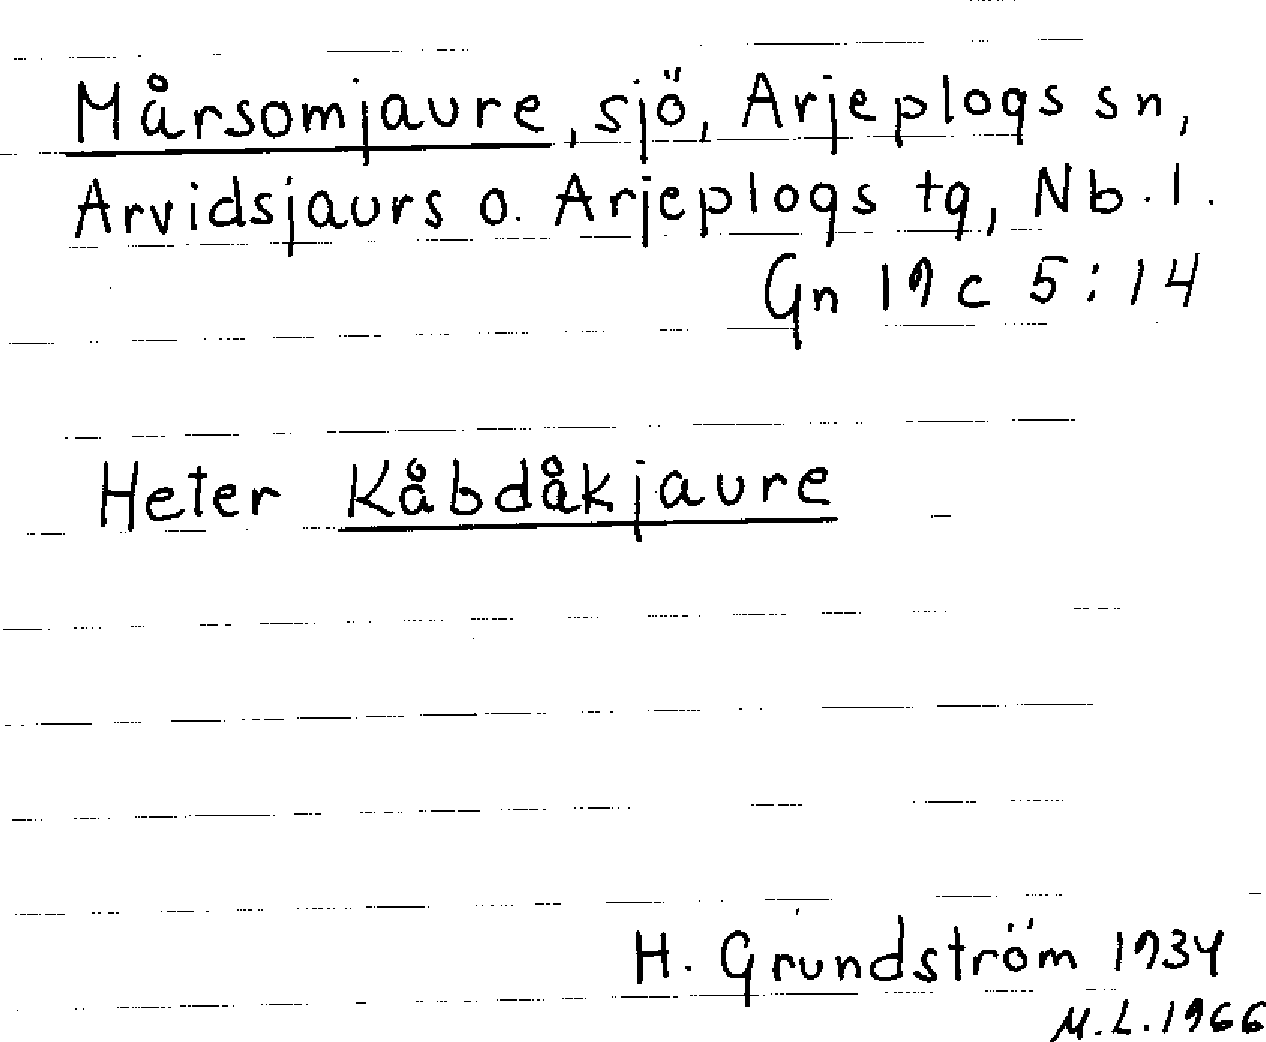 Mårsomjaure, sjö, Arjeplogs sn,
Arvidsjaurs o. Arjeplogs tg, Nb. l.
Gn 19 c 5:14
Heter Kåbdåkjaure
H. Grundström 1934
M.L. 1966